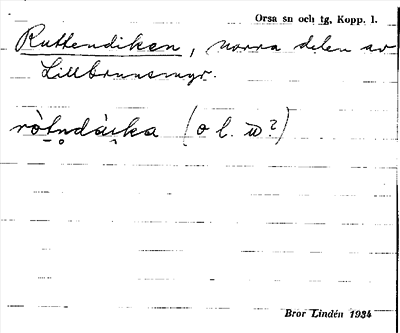 Orsa sn och tg, Kopp. l.
Ruttendiken, norra delen av
Lillbrunsmyr.
rò̱tn̥dáịka (o l. ω̄?)
Bror Lindén 1934